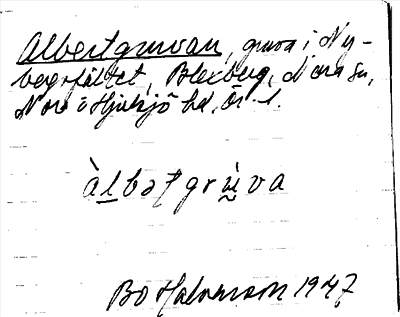 Albertgruvan, gruva i Ny-
bergsfältet, Blexberg, Nora sn,
Nora o Hjulsjö hd, Ör. l.
àlbəƭgrùva
Bo Halvarson 1947